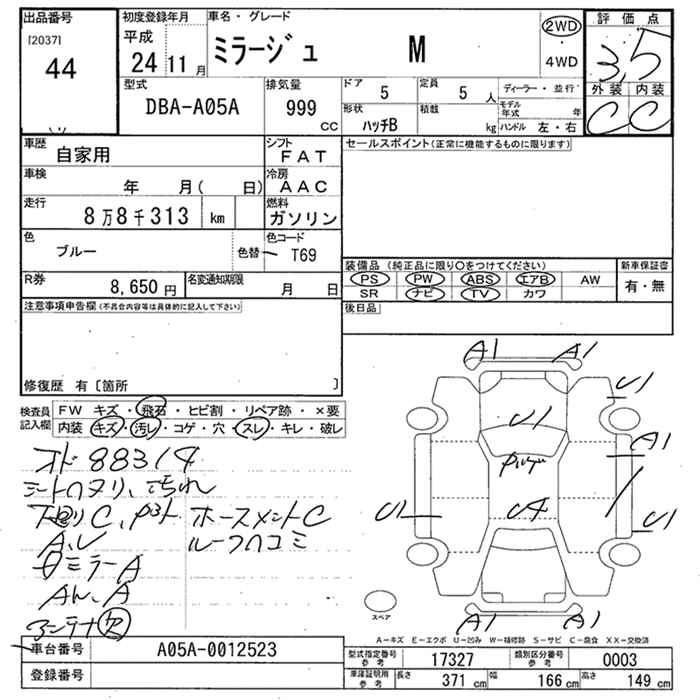 出品番号
[2037]
44
初度登録年月
平成
24 11 月
車名・グレード
ミラージュ M
2WD
・
4WD
評価点
3.5
外装 内装
C C
型式
DBA-A05A
排気量
999 CC
ドア 5
定員 5 人
形状 ハッチB
積載 kg
ディーラー・並行
モデル年式 年
ハンドル 左・右
車歴
自家用
シフト
FAT
車検
年 月( 日)
冷房
AAC
走行
8万8千313 km
燃料
ガソリン
色
ブルー
色替
色コード
T69
R券
8,650 円
名変通知期限
月 日
セールスポイント(正常に機能するものに限ります)
装備品 (純正品に限り○をつけてください)
PS PW ABS エアB AW
SR ナビ TV カワ
新車保証書
有・無
後日品
注意事項申告欄(不具合内容等は具体的に記入して下さい)
修復歴 有〔箇所 〕
検査員記入欄
FW キズ・飛石・ヒビ割・リペア跡・×要
内装・キズ・汚レ・コゲ・穴・スレ・キレ・破レ
オド 88314
シートヘタリ、汚れ
下廻りC、
ホースメントC
ルーフヘコミ
ミラーA
アンテナ欠
A1 A1
U1
U1
A1
U4
U1
U1
A1 A1
スペア
A-キズ E-エクボ U-凹み W-補修跡 S-サビ C-腐食 XX-交換済
車台番号
A05A-0012523
登録番号
型式指定番号参考
17327
類別区分番号参考
0003
車庫証明用参考
長さ 371 cm
幅 166 cm
高さ 149 cm